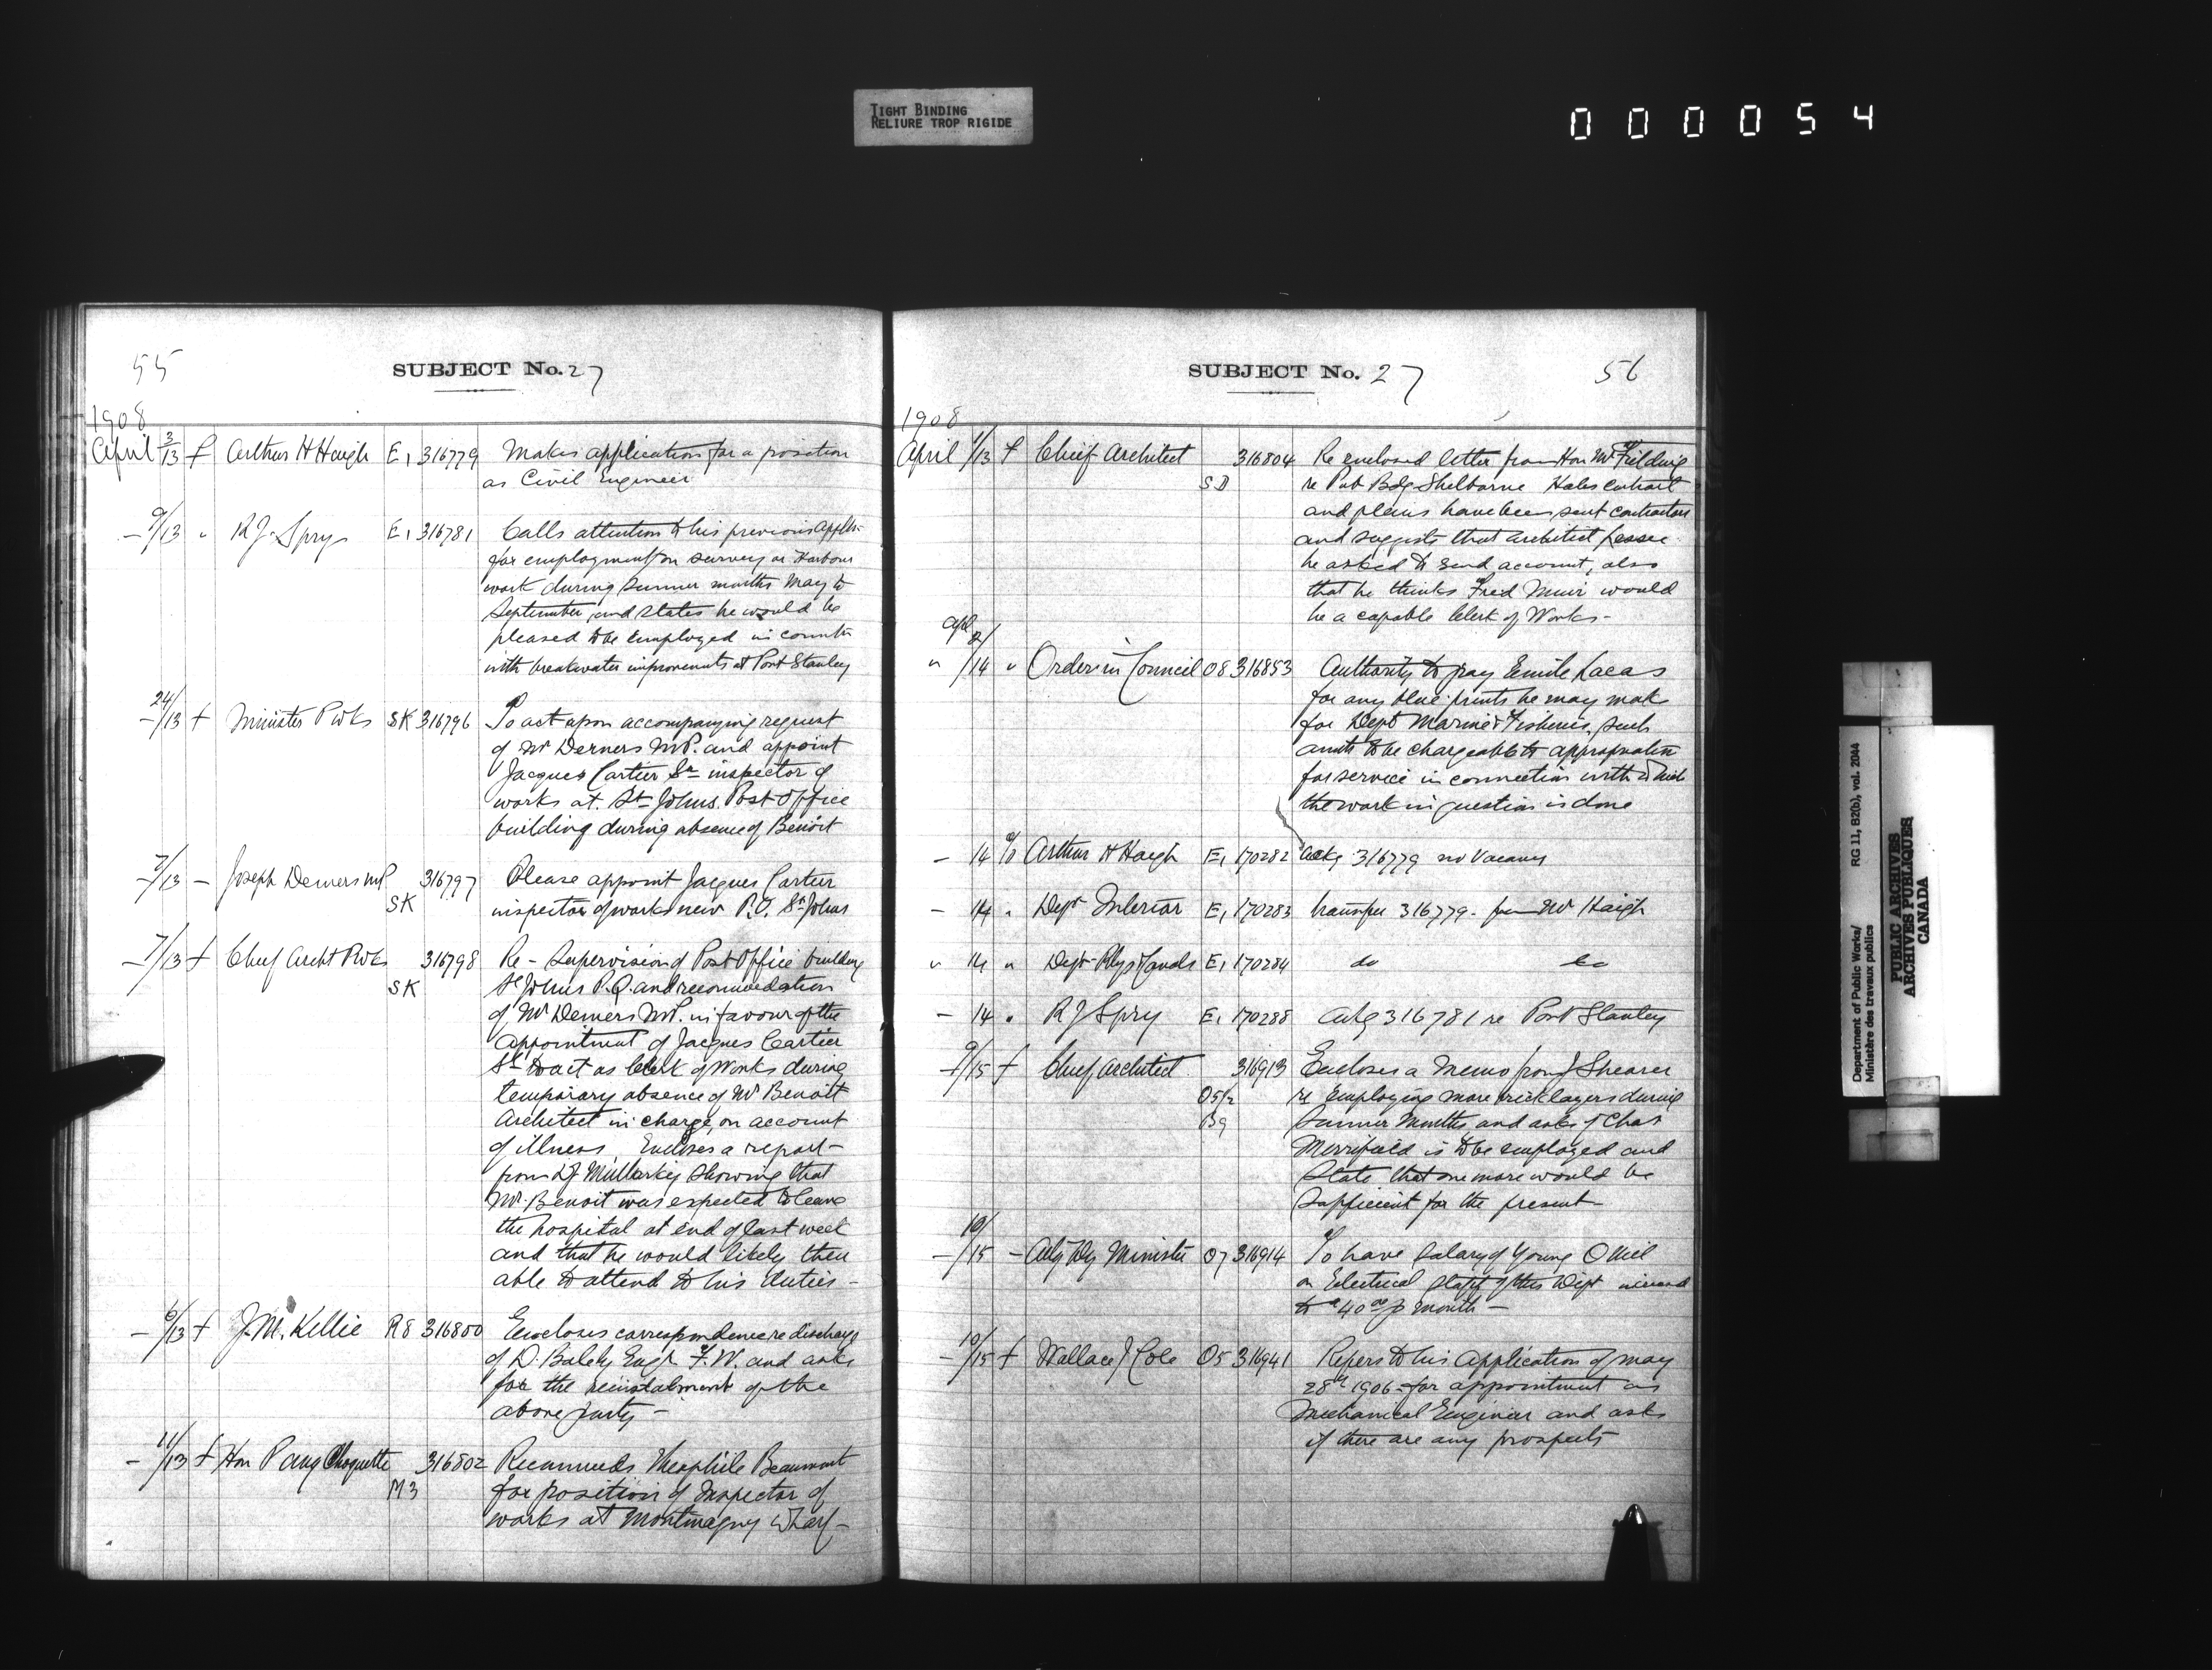 TIGHT BINDING
RELIURE TROP RIGIDE
000054
55
SUBJECT No. 27
1908
April 3/13 f Arthur H Haigh E1 316779 Makes application for a position
as Civil Engineer
— 9/13 " R J Spry E1 316781 Calls attention to his previous appln
for employment on survey or Harbour
work during summer months May to
September, and states he would be
pleased to be employed in connctn
with breakwater improvements at Port Stanley
— 24/13 f Minister P Wks SK 316796 To act upon accompanying request
of Mr Demers M.P. and appoint
Jacques Cartier Sr inspector of
works at St Johns Post Office
building during absence of Benoit
— 7/13 — Joseph Demers MP SK 316797 Please appoint Jacques Cartier
inspector of works new P.O. St Johns
— 7/13 f Chief Archt P Wks SK 316798 Re - Supervision of Post Office building
St Johns P.Q. and recommendation
of Mr Demers M.P. in favour of the
appointment of Jacques Cartier
Sr to act as Clerk of Works during
temporary absence of Mr Benoit
Architect in charge, on account
of illness, Encloses a report
from Mullarkey showing that
Mr. Benoit was expected to leave
the hospital at end of last week
and that he would likely then
able to attend to his duties —
— 6/13 f J. M. Kellie R8 316800 Encloses correspondence re discharge
of D. Engr F. W. and asks
for the reinstalment of the
above party —
— 11/13 f Hon P Aug Choquette M3 316802 Recommends Theophile Beaumont
for position of Inspector of
works at Montmagny Wharf —
SUBJECT No. 27
56
1908
April 1/13 f Chief Architect SD 316804 Re enclosed letter from Hon Mr Fielding
re Pub Bdg Shelborne states contract
and plans have been sent contractors
and suggests that architect
be asked to send account, also
that he thinks Fred Muir would
be a capable Clerk of Works —
Apl
" 2/14 " Order in Council 08 316853 Authority to pay Emile Lacas
for any blue prints he may make
for Dept Marine & Fisheries, such
amts to be chargeable to appropriation
for service in connection with which
the work in question is done
— 14 % Arthur H Haigh E1 170282 Ackg 316779 no vacancy
— 14 " Dept Interior E1 170283 transfer 316779 from Mr Haigh
" 14 " Dept Rlys & Canals E1 170284 do do
— 14 " R J Spry E1 170288 ackg 316781 re Port Stanley
— 9/15 f Chief Architect 05½ B9 316913 Encloses a memo from J Shearer
re employing more bricklayers during
summer months, and asks if Chas
Merrifield is to be employed and
state that one more would be
sufficient for the present
— 10/15 — Actg Dy Minister 07 316914 To have salary of young O Neil
on Electrical Staff of this Dept
to $40 00 p month —
— 10/15 f Wallace J Cole 05 316941 Refers to his application of May
28th 1906 for appointment as
Mechanical Engineer and asks
if there are any prospects
Department of Public Works/ RG 11, B2(b), vol. 2044
Ministère des travaux publics
PUBLIC ARCHIVES
ARCHIVES PUBLIQUES
CANADA